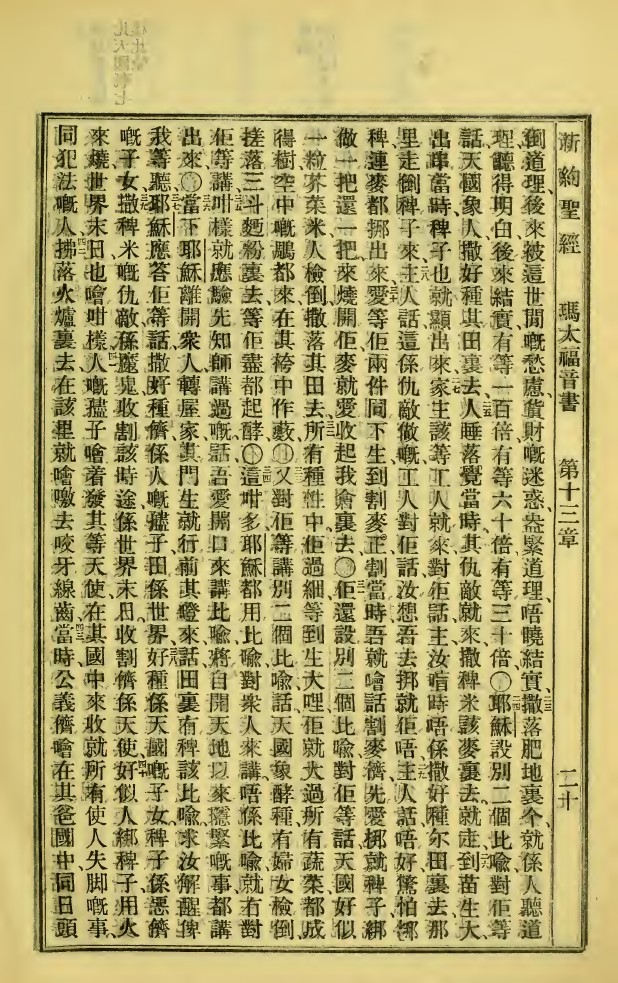 新約聖經 瑪太福音書 第十三章 二十
倒道理、後來被這世間嘅愁慮貨財嘅迷惑、盎緊道理、唔曉結實、撒落肥地裏个、就係人聽道
理、聽得明白、後來結實、有等一百倍、有等六十倍、有等三十倍、〇耶穌設別二個比喻、對佢等
話、天國象人撒好種其田裏去、人睡落覺當時、其仇敵就來、撒稗米該麥裏去、就走、到苗生大、
出串當時、稗子也就顯出來、家主該等工人就來、對佢話、主、汝啱時唔係撒好種尔田裏去、那
里走倒稗子來、主人話、這係仇敵做嘅、工人對佢話、汝想吾去挷就佢唔、主人話、唔好、驚怕挷
稗連麥都挷出來、愛等佢兩件同下生到割麥正割當時吾就噲話割麥儕、先愛挷就稗子綁
做一把還一把來燒開佢、麥就愛收起我倉裏去、〇佢還設別二個比喻、對佢等話、天國好似
一粒芥菜米、人檢倒撒落其田去、所有種性中佢過細、等到生大哩、佢就大過所有蔬菜、都成
得樹、空中嘅鵰、都來在其袴中作藪、〇又對佢等講別二個比喻話、天國象酵種、有婦女檢倒、
搓落三斗麵粉裏去、等佢盡都起酵、〇這咁多耶穌都用比喻對衆人來講、唔係比喻、就冇對
佢等講、咁樣就應驗先知師講過嘅話、吾愛開口來講比喻、將自開天地以來、䆲緊嘅事都講
出來、〇當下耶穌離開衆人、轉屋家、其門生就行前其𠊎來話、田裏有稗該比喻、求汝解醒俾
我等聽、耶穌應答佢等話、撒好種儕、係人嘅孻子、田係世界、好種係天國嘅子女、稗子係惡儕
嘅子女、撒稗米嘅仇敵、係魔鬼、收割該時途、係世界末日、收割儕、係天使、好似人綁稗子用火
來燒、世界末日也噲咁樣、人嘅孻子噲着發其等天使、在其國中來收就所有使人失脚嘅事、
同犯法嘅人、拂落火爐裏去、在該里就噲噭去咬牙線齒、當時公義儕、噲在其爸國中、同日頭